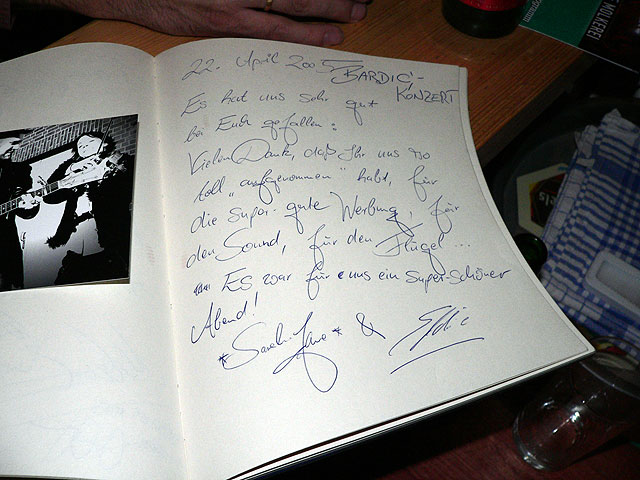 22. April 2005 BARDIC-
KONZERT
Es hat uns sehr gut
bei Euch gefallen:
Vielen Dank, daß Ihr uns so
toll „aufgenommen" habt, für
die super-gute Werbung, für
den Sound, für den Flügel ...
Es war für uns ein super-schöner
Abend!
*Sarah-Jane* & Eddie
MOLKEREI